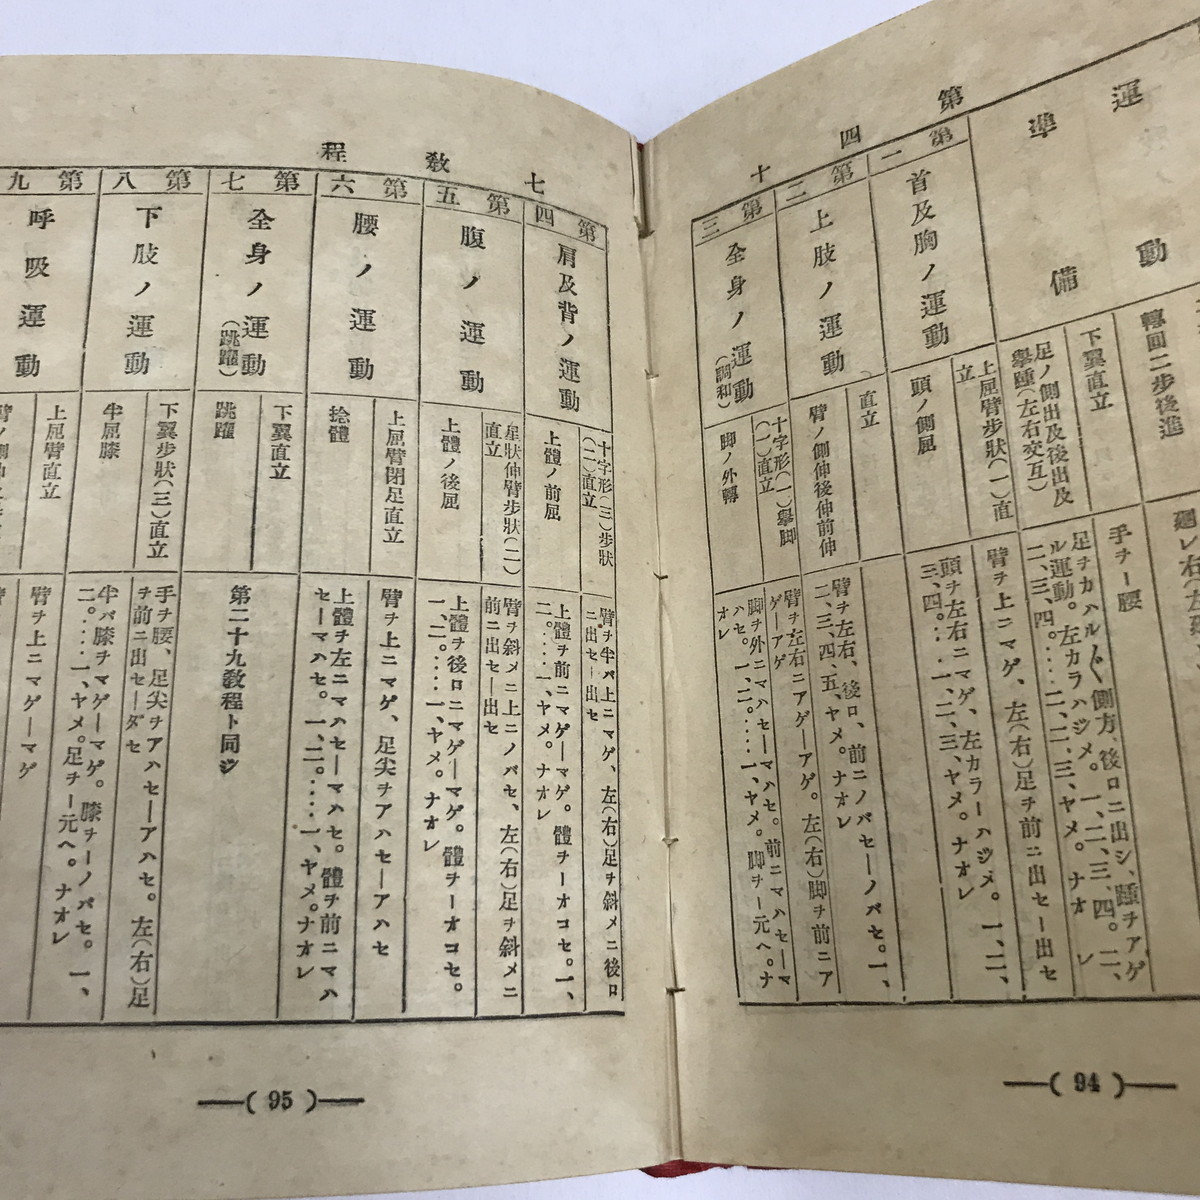 第四十七教程
準備運動
轉回二步後進
下翼直立
手チー腰
足ノ側出及後出及
擧踵(左右交互)
足チカハル〴〵側方、後ロニ出シ、踵チアゲ
ル運動。左カラハジメ。一、二、三、四。二、
二、三、四。……二、二、三、ヤメ。ナオレ
第一
首及胸ノ運動
上屈臂步狀(一)直
立
臂チ上ニマゲ、左(右)足チ前ニ出セー出セ
頭ノ側屈
頭チ左右ニマゲ、左カラーハジメ。一、二、
三、四。…一、二、三、ヤメ。ナオレ
第二
上肢ノ運動
直立
臂ノ側伸後伸前伸
臂チ左右、後ロ、前ニノバセーノバセ。一、
二、三、四、五、ヤメ。ナオレ
第三
全身ノ運動
(調和)
十字形(一)擧脚
(一)直立
臂チ左右ニアゲーアゲ。左(右)脚チ前ニア
ゲーアゲ
脚ノ外轉
脚チ外ニマハセーマハセ。前ニマハセーマ
ハセ。一、二。……一、ヤメ。脚チー元ヘ。ナ
オレ
第四
肩及背ノ運動
十字形(三)步狀
(二)直立
臂チ半バ上ニマゲ、左(右)足チ斜メニ後ロ
ニ出セー出セ
上體ノ前屈
上體チ前ニマゲーマゲ。體チーオコセ。一、
二。……一、ヤメ。ナオレ
第五
腹ノ運動
星狀伸臂步狀(二)
直立
臂チ斜メニ上ニノバセ、左(右)足チ斜メニ
前ニ出セー出セ
上體ノ後屈
上體チ後ロニマゲーマゲ。體チーオコセ。
一、二。……一、ヤメ。ナオレ
第六
腰ノ運動
上屈臂閉足直立
臂チ上ニマゲ、足尖チアハセーアハセ
捻體
上體チ左ニマハセーマハセ。體チ前ニマハ
セーマハセ。一、二。……一、ヤメ。ナオレ
第七
全身ノ運動
(跳躍)
下翼直立
跳躍
第二十九敎程ト同ジ
第八
下肢ノ運動
下翼步狀(三)直立
手チ腰、足尖チアハセーアハセ。左(右)足
チ前ニ出セーダセ
半屈膝
半バ膝チマゲーマゲ。膝チーノバセ。一、
二。……一、ヤメ。足チー元ヘ。ナオレ
第九
呼吸運動
上屈臂直立
臂チ上ニマゲーマゲ
(94)
(95)